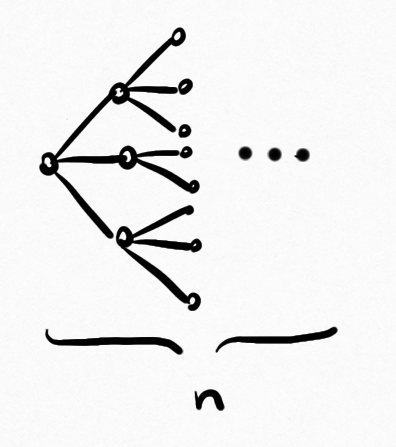 ...
n